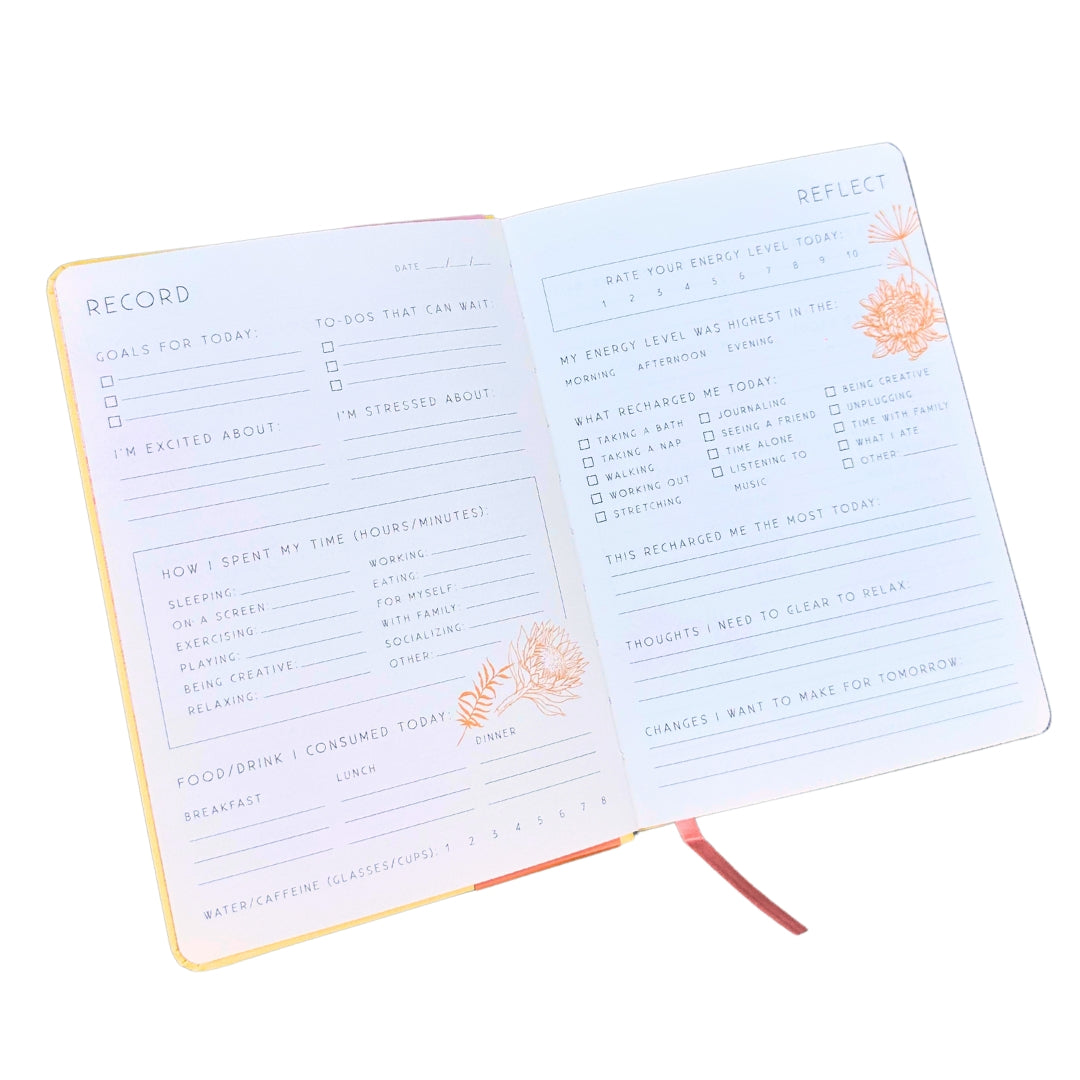 RECORD
DATE __/__/__
GOALS FOR TODAY:
TO-DOS THAT CAN WAIT:
I'M EXCITED ABOUT:
I'M STRESSED ABOUT:
HOW I SPENT MY TIME (HOURS/MINUTES):
SLEEPING:
ON A SCREEN:
EXERCISING:
PLAYING:
BEING CREATIVE:
RELAXING:
WORKING:
EATING:
FOR MYSELF:
WITH FAMILY:
SOCIALIZING:
OTHER:
FOOD/DRINK I CONSUMED TODAY:
BREAKFAST
LUNCH
DINNER
WATER/CAFFEINE (GLASSES/CUPS): 1 2 3 4 5 6 7 8
REFLECT
RATE YOUR ENERGY LEVEL TODAY:
1 2 3 4 5 6 7 8 9 10
MY ENERGY LEVEL WAS HIGHEST IN THE:
MORNING AFTERNOON EVENING
WHAT RECHARGED ME TODAY:
TAKING A BATH
TAKING A NAP
WALKING
WORKING OUT
STRETCHING
JOURNALING
SEEING A FRIEND
TIME ALONE
LISTENING TO
MUSIC
BEING CREATIVE
UNPLUGGING
TIME WITH FAMILY
WHAT I ATE
OTHER:
THIS RECHARGED ME THE MOST TODAY:
THOUGHTS I NEED TO CLEAR TO RELAX:
CHANGES I WANT TO MAKE FOR TOMORROW: